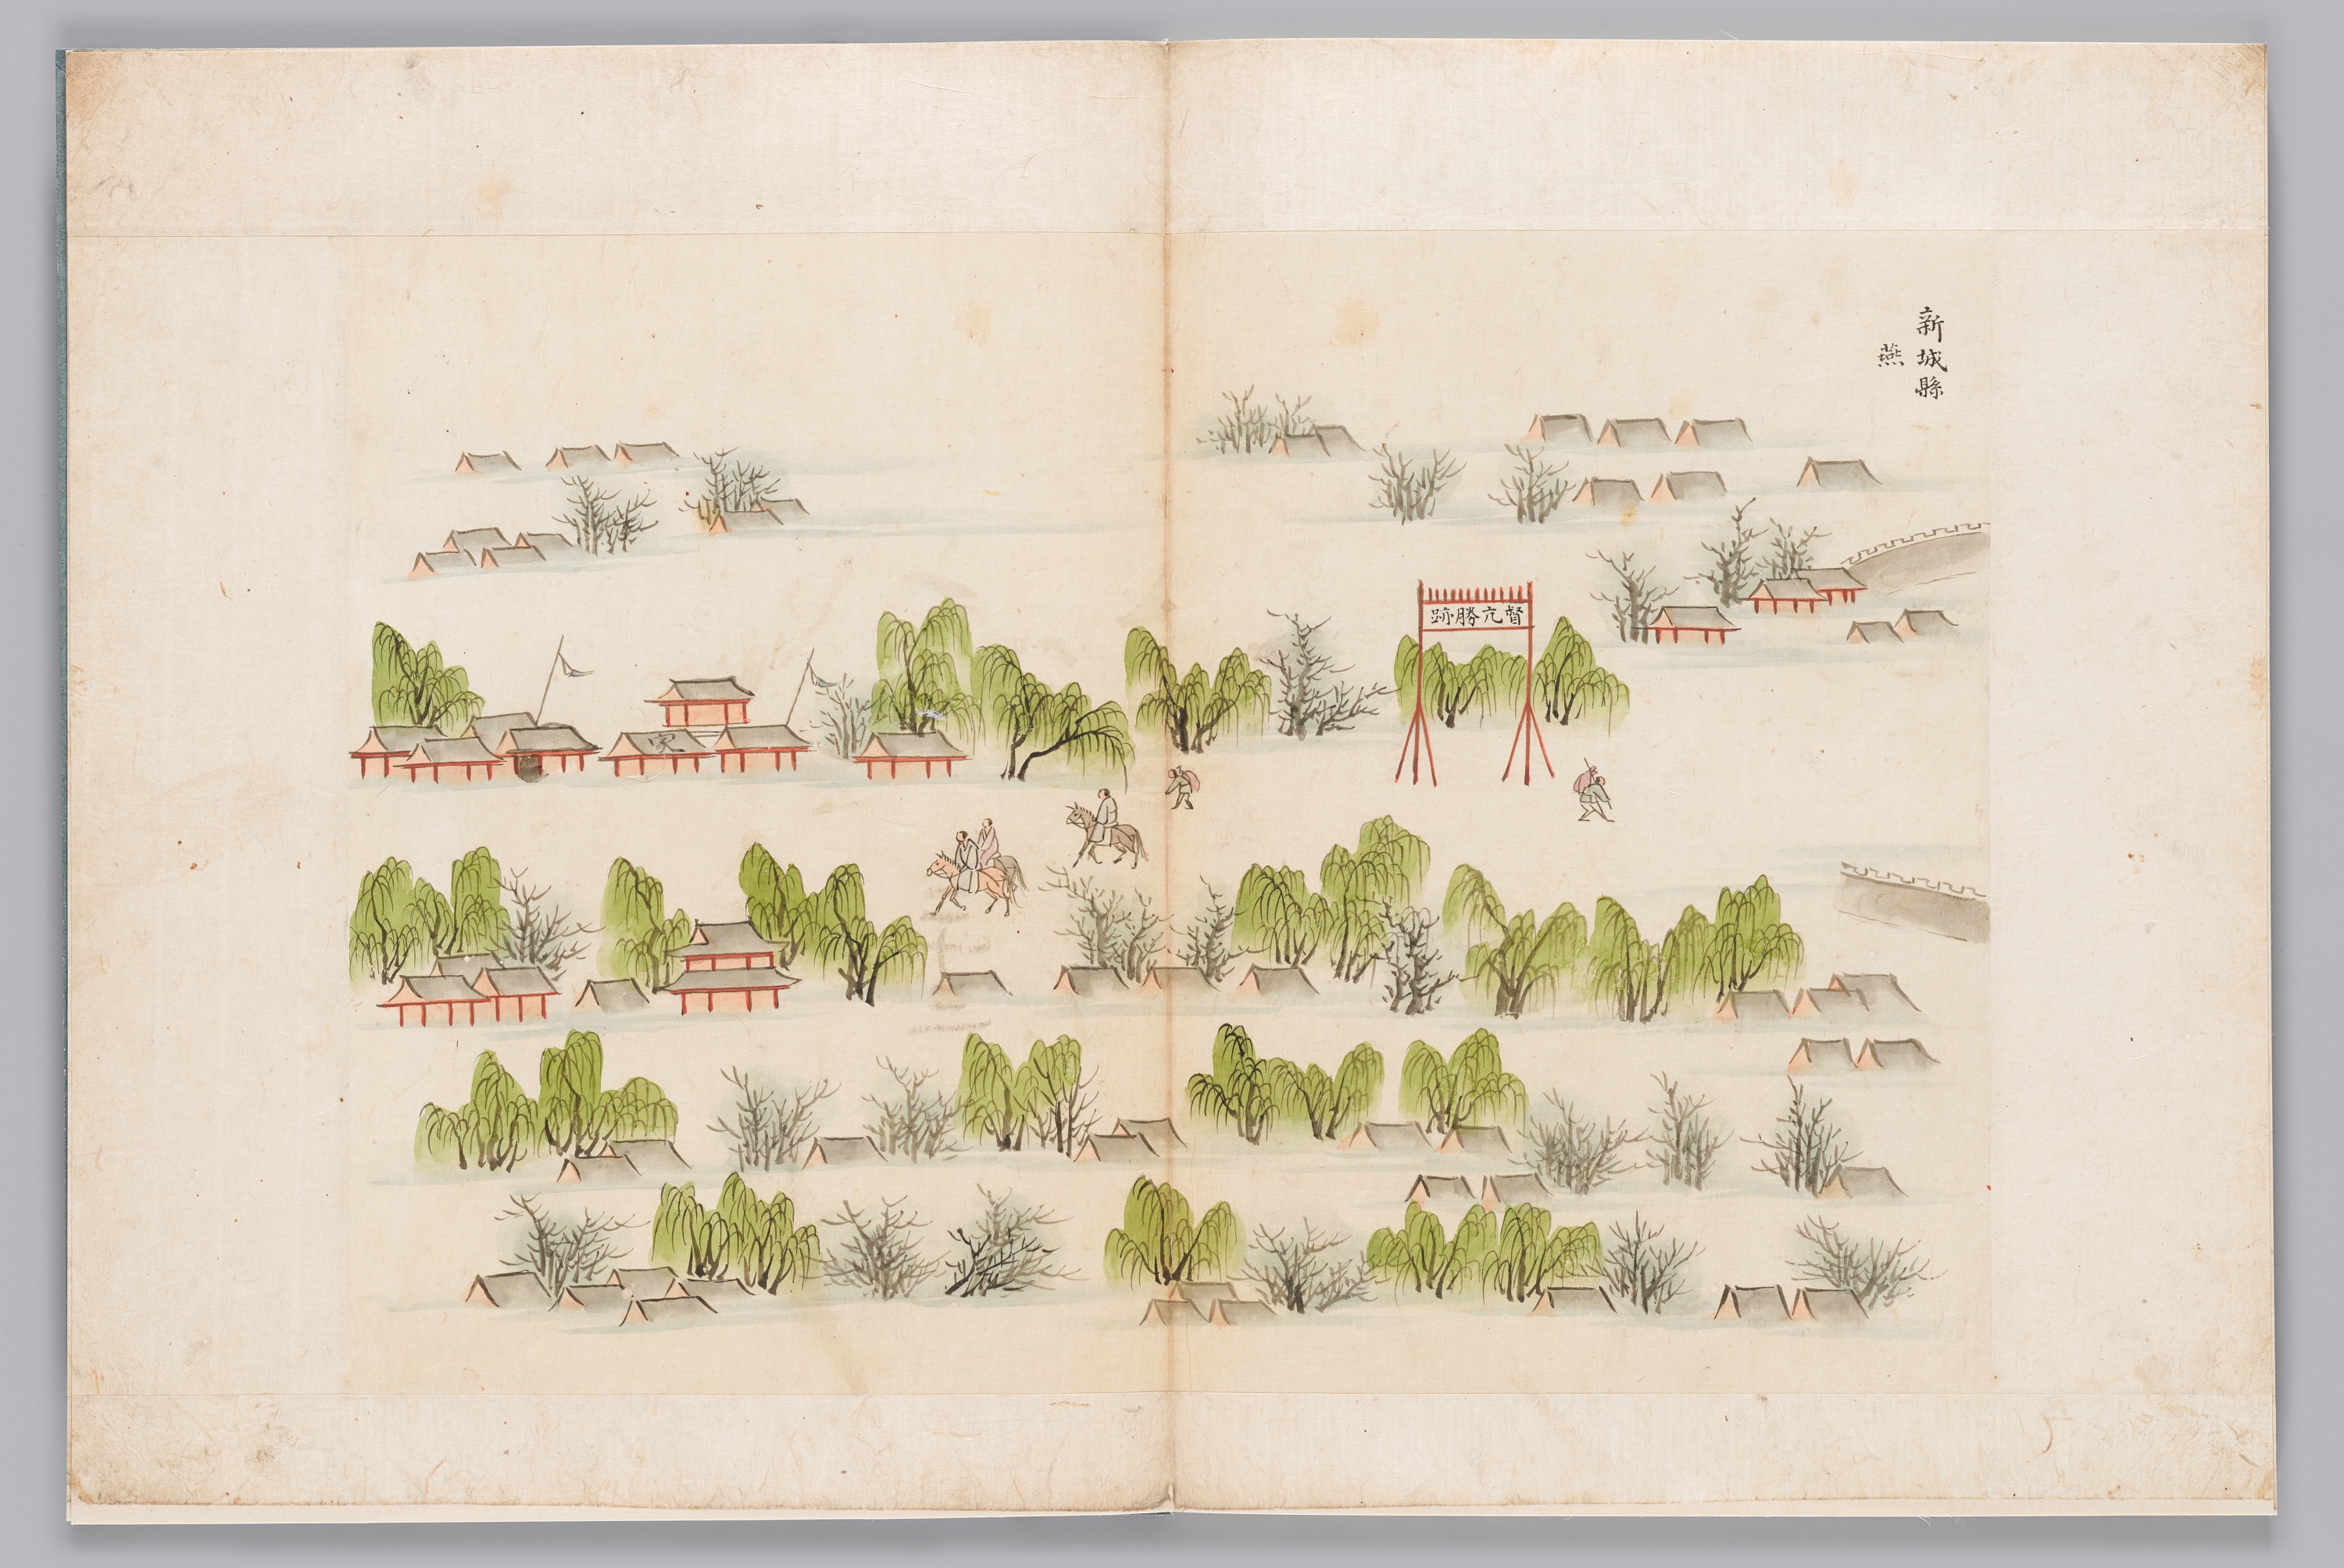 新城縣
燕
督亢勝跡